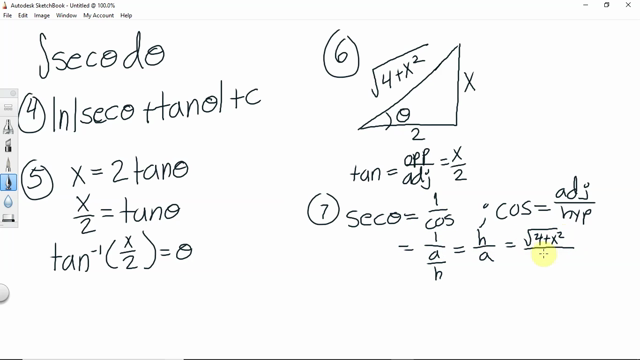 Autodesk SketchBook - Untitled @ 100.0%
File Edit Image Window My Account Help
∫secθdθ
④ ln|secθ+tanθ|+c
⑤ x=2tanθ
x/2=tanθ
tan⁻¹(x/2)=θ
⑥
√4+x²
x
θ
2
tan=opp/adj=x/2
⑦ secθ=1/cos ; cos=adj/hyp
=1/(a/h)=h/a=√4+x²/